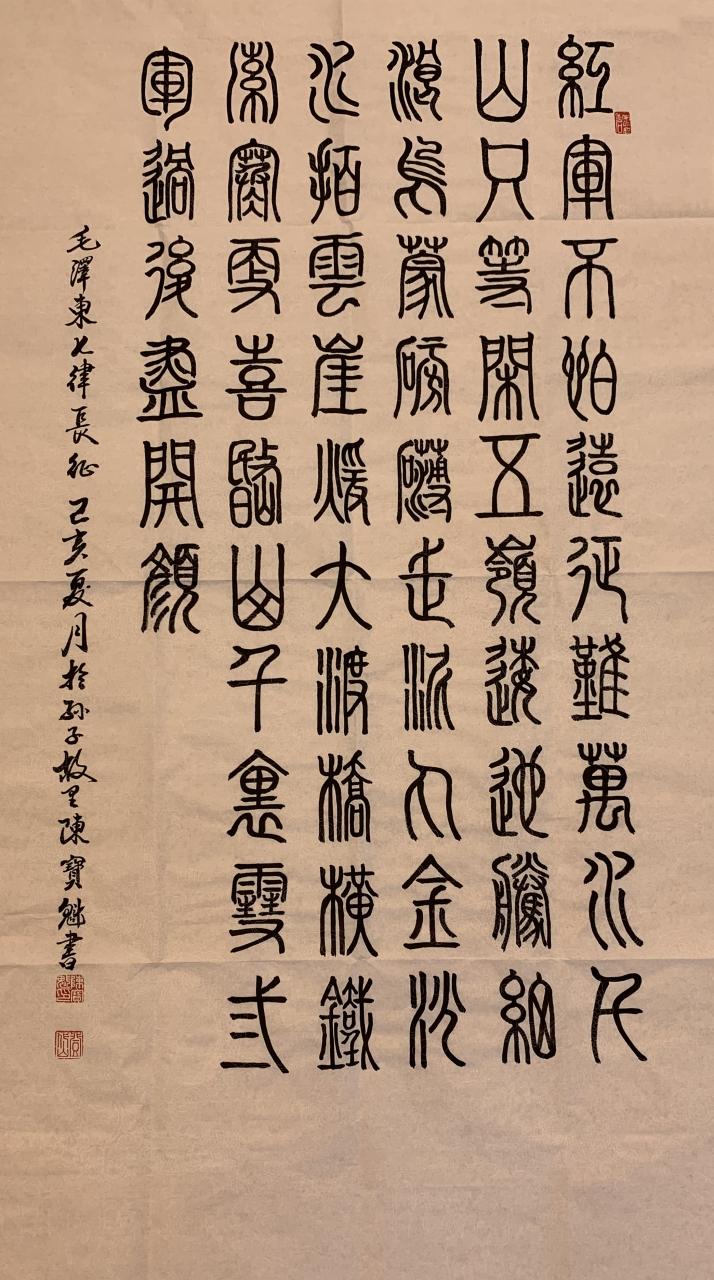 紅軍不怕遠征難萬水千
山只等閑五嶺逶迤騰細
浪烏蒙磅礴走泥丸金沙
水拍雲崖暖大渡橋橫鐵
索寒更喜岷山千裏雪弎
軍過後盡開顏
毛澤東七律長征 己亥夏月於孫子故里陳寶魁書